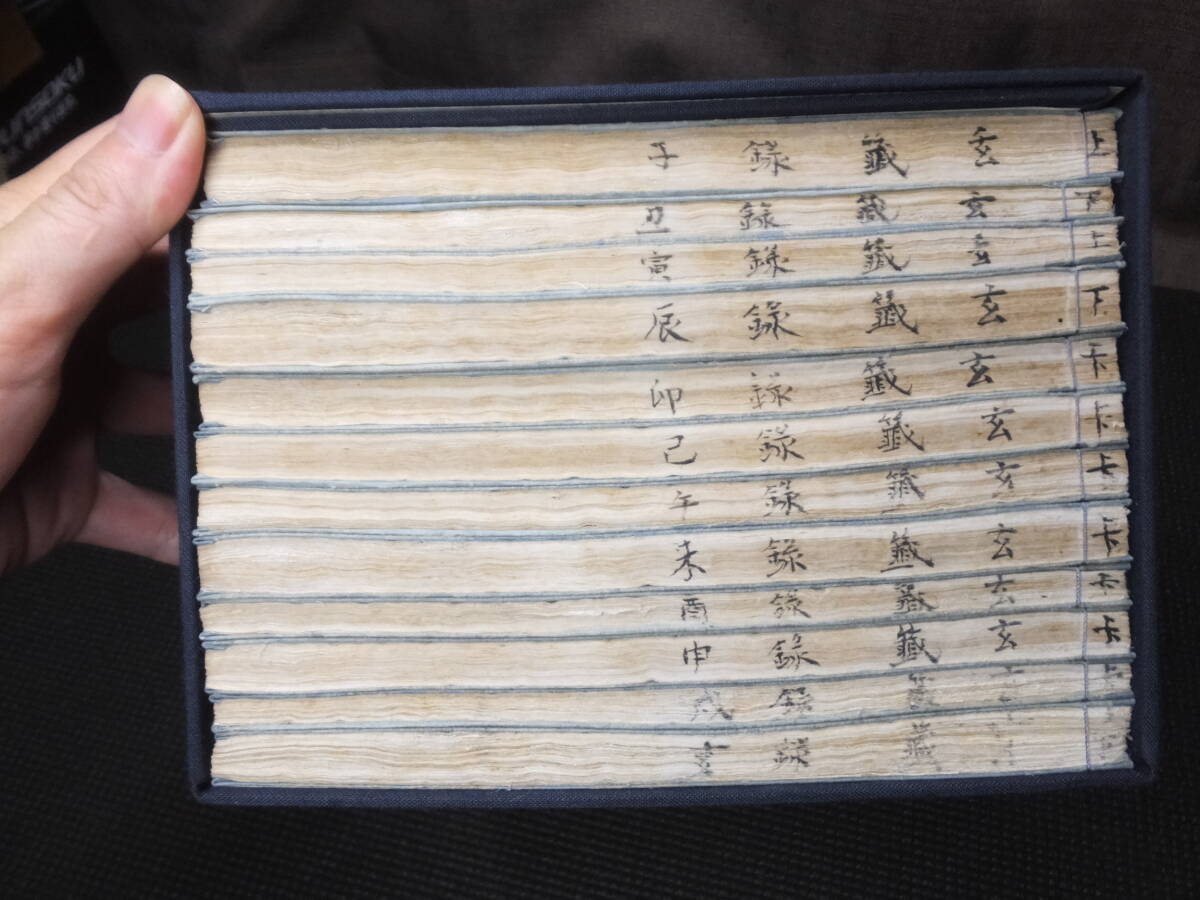 上玄籤錄子
下玄籤錄丑
上玄籤錄寅
下玄籤錄辰
玄籤錄卯
卡玄籤錄己
玄籤錄午
卡玄籤錄未
卡玄籤錄酉
卡玄籤錄申
籤錄戌
籤錄